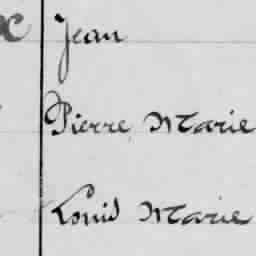 Jean
Pierre Marie
Louis Marie